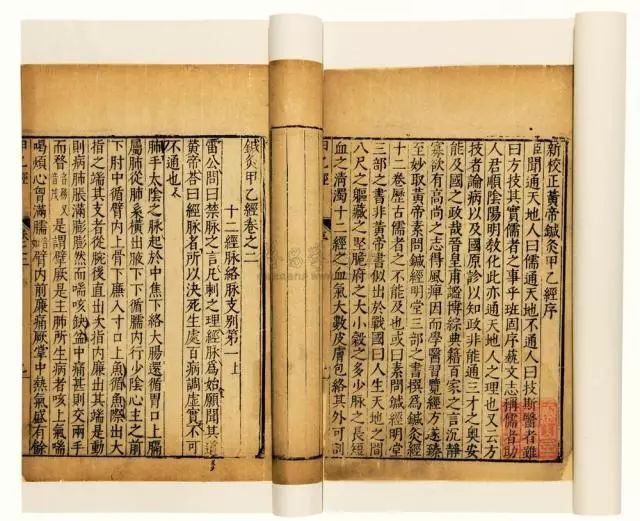 新校正黃帝鍼灸甲乙經序
臣聞通天地人曰儒通天地不通人曰技斯醫者雖
曰方技其實儒者之事乎班固序藝文志稱儒者助
人君順陰陽明教化此亦通天地人之理也又云方
技者論病以及國原診以知政非能通三才之奧安
能及國之政哉晉皇甫謐博綜典籍百家之言沉靜
寡欲有高尚之志得風痺因而學醫習覽經方遂臻
至妙取黃帝素問鍼經明堂三部之書撰爲鍼灸經
十二卷歷古儒者之不能及也或曰素問鍼經明堂
三部之書非黃帝書似出於戰國曰人生天地之間
八尺之軀藏之堅脆府之大小穀之多少脉之長短
血之清濁十二經之血氣大數皮膚包絡其外可剖
甲乙經
鍼灸甲乙經卷之二
十二經脉絡脉支別第一上
雷公問曰禁脉之言凡刺之理經脉爲始願聞其道
黃帝答曰經脉者所以決死生處百病調虛實不可
不通也
肺手太陰之脉起於中焦下絡大腸還循胃口上膈
屬肺從肺系橫出腋下下循臑內行少陰心主之前
下肘中循臂內上骨下廉入寸口上魚循魚際出大
指之端其支者從腕後直出次指內廉出其端是動
則病肺脹滿膨膨然而喘咳缺盆中痛甚則交兩手
而瞀音務又音茂是謂臂厥是主肺所生病者咳上氣喘
喝煩心胷滿臑臂內前廉痛厥掌中熱氣盛有餘
甲乙經